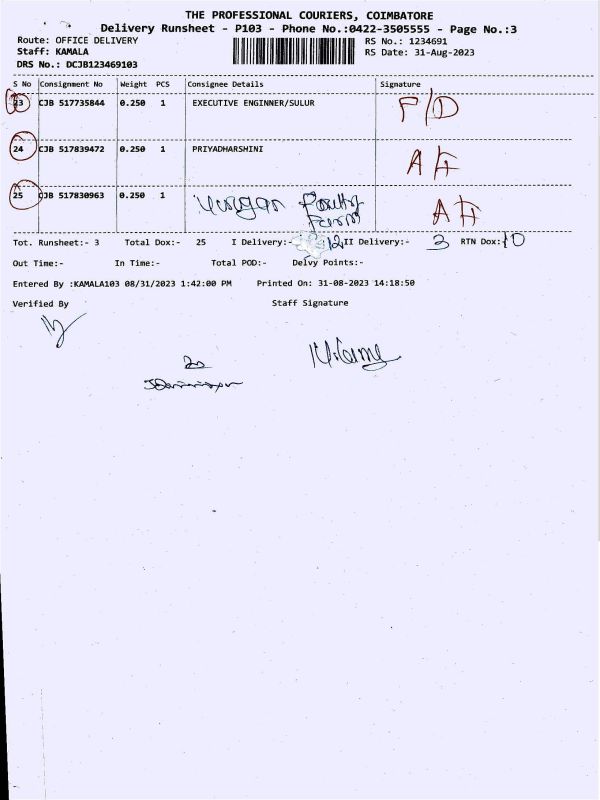 THE PROFESSIONAL COURIERS, COIMBATORE
Delivery Runsheet - P103 - Phone No.:0422-3505555 - Page No.:3
Route: OFFICE DELIVERY RS No.: 1234691
Staff: KAMALA RS Date: 31-Aug-2023
DRS No.: DCJB123469103
S No Consignment No Weight PCS Consignee Details Signature
23 CJB 517735844 0.250 1 EXECUTIVE ENGINNER/SULUR F/D
24 CJB 517839472 0.250 1 PRIYADHARSHINI
25 CJB 517830963 0.250 1 Poultry
Farm
Tot. Runsheet:- 3 Total Dox:- 25 I Delivery:- 12 II Delivery:- 3 RTN Dox:- 10
Out Time:- In Time:- Total POD:- Delvy Points:-
Entered By :KAMALA103 08/31/2023 1:42:00 PM Printed On: 31-08-2023 14:18:50
Verified By Staff Signature